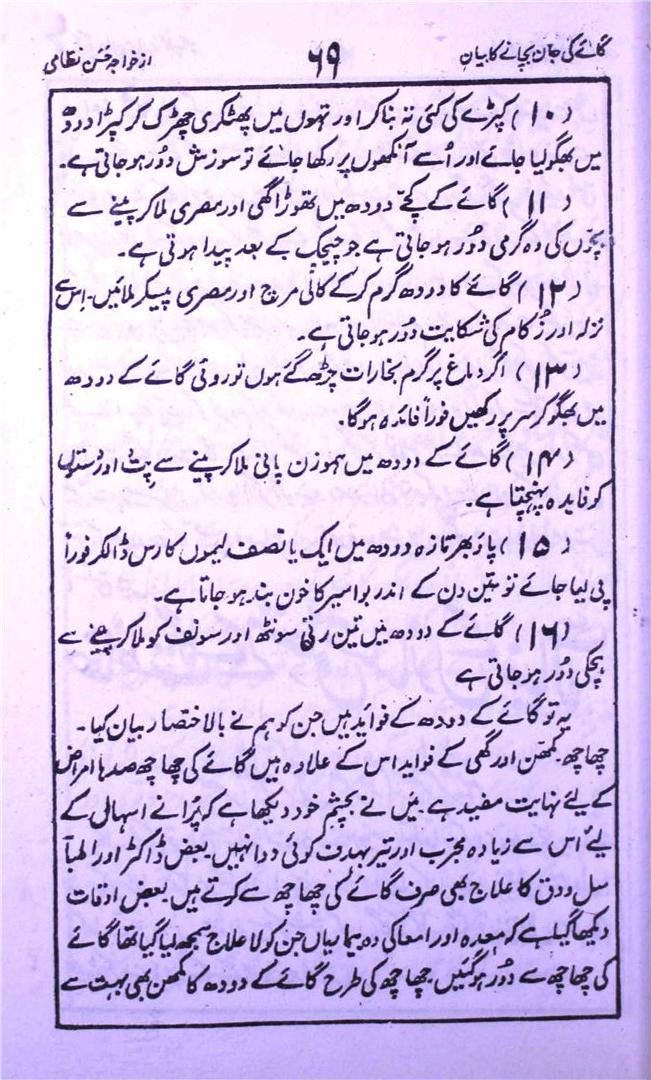 گائے کی جان بچانے کا بیان ۶۹ از خواجہ حسن نظامی
(۱۰) کپڑے کی کئی تہ بنا کر اور تہوں میں پھٹکری چھڑک کر کپڑا دودھ
میں بھگو لیا جائے اور اُسے آنکھوں پر رکھا جائے تو سوزش دُور ہو جاتی ہے۔
(۱۱) گائے کے کچّے دودھ میں تھوڑا گھی اور مصری ملا کر پینے سے
بچّوں کی وہ گرمی دُور ہو جاتی ہے جو چیچک کے بعد پیدا ہوتی ہے۔
(۱۲) گائے کا دودھ گرم کر کے کالی مرچ اور مصری پیسکر ملائیں۔ اِس سے
نزلہ اور زُکام کی شکایت دُور ہو جاتی ہے۔
(۱۳) اگر دماغ پر گرم بخارات چڑھ گئے ہوں تو روئی گائے کے دودھ
میں بھگو کر سر پر رکھیں فوراً فائدہ ہوگا۔
(۱۴) گائے کے دودھ میں ہموزن پانی ملا کر پینے سے پت اور دستوں
کو فایدہ پہنچتا ہے۔
(۱۵) پاؤ بھر تازہ دودھ میں ایک یا نصف لیموں کا رس ڈالکر فوراً
پی لیا جائے تو تین دن کے اندر بواسیر کا خون بند ہو جاتا ہے۔
(۱۶) گائے کے دودھ میں تین رتی سونٹھ اور سونف کو ملا کر پینے سے
ہچکی دُور ہو جاتی ہے
یہ تو گائے کے دودھ کے فواید ہیں جن کو ہم نے بالاختصار بیان کیا۔
چھاچھ۔ مکھن اور گھی کے فواید اس کے علاوہ ہیں گائے کی چھاچھ صدہا امراض
کے لیئے نہایت مفید ہے۔ میں نے بچشم خود دیکھا ہے کہ پُرانے اسہال کے
لیئے اس سے زیادہ مجرب اور تیر بہدف کوئی دوا نہیں۔ بعض ڈاکٹر اور اطبآ
سل و دق کا علاج بھی صرف گائے کی چھاچھ سے کرتے ہیں۔ بعض اوقات
دیکھا گیا ہے کہ معدہ اور امعا کی وہ بیماریاں جن کو لا علاج سمجھ لیا گیا تھا گائے
کی چھاچھ سے دُور ہو گئیں۔ چھاچھ کی طرح گائے کے دودھ کا مکھن بھی بہت سے